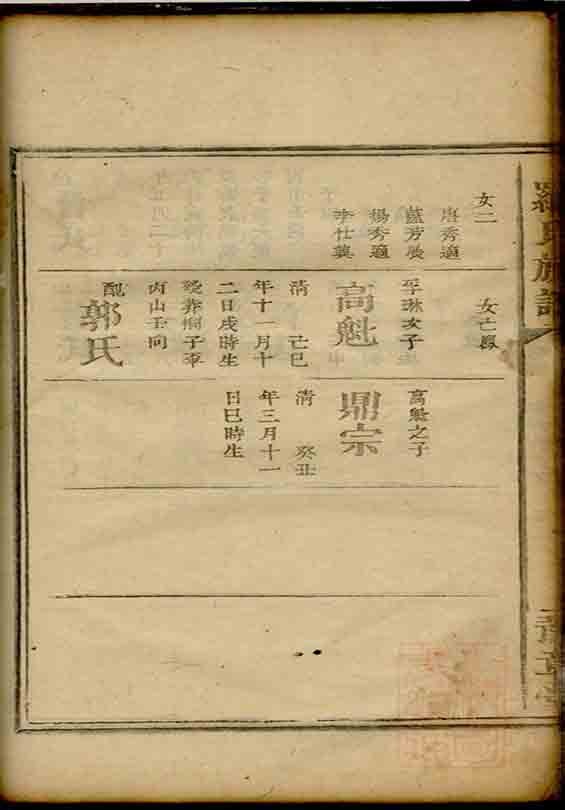 羅氏族譜
女二
唐秀適
藍芳展
楊秀適
李仕
女亡
琳次子
高魁
清 己巳
年十一月十
二日戌時生
歿葬桐子
丙山壬向
配郭氏
高魁之子
鼎宗
清 癸丑
年三月十一
日巳時生